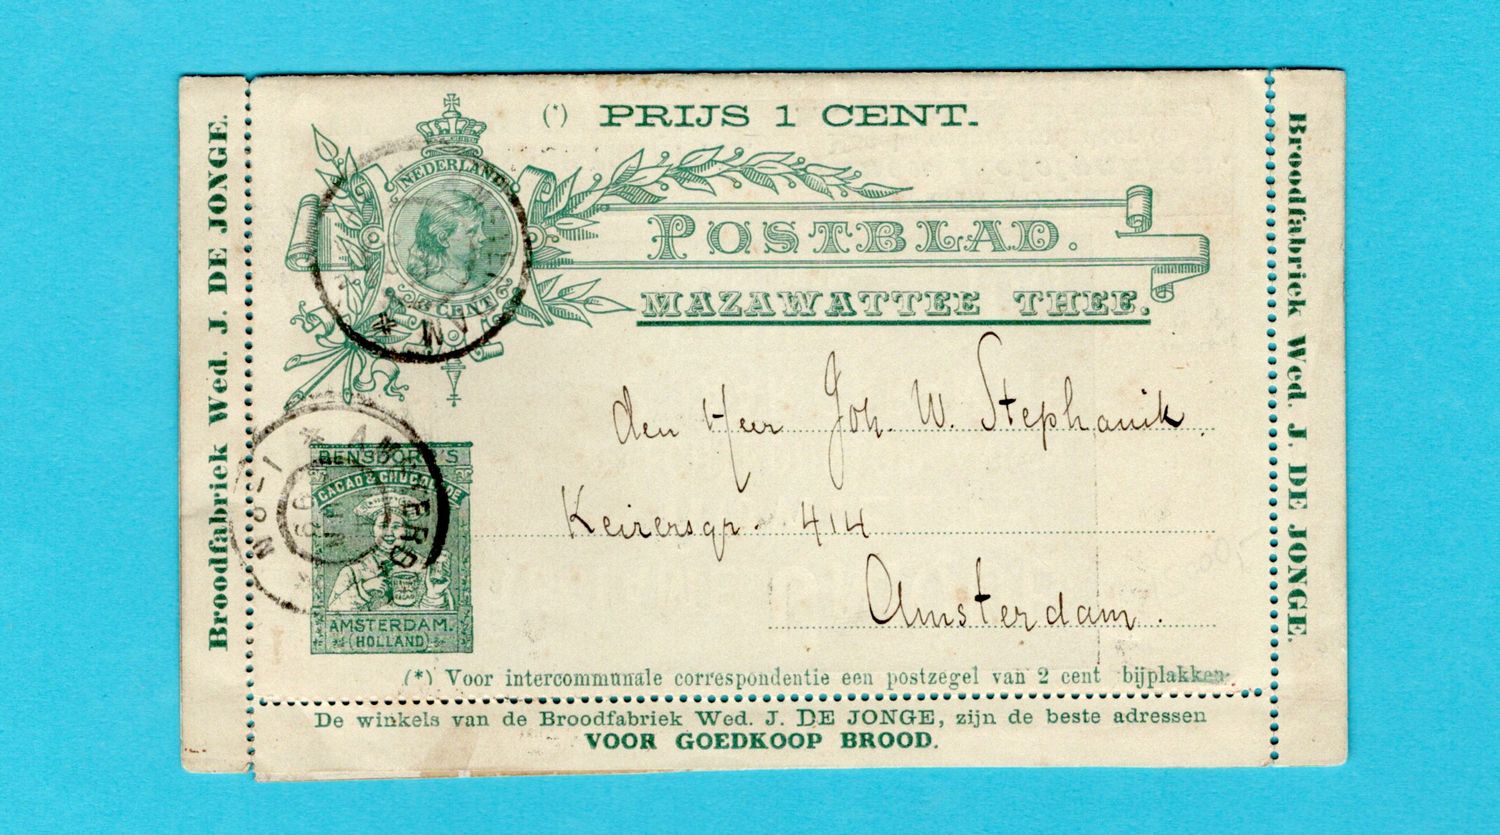 (*) PRIJS 1 CENT.
NEDERLAND
CENT
POSTBLAD.
MAZAWATTEE THEE.
den Heer Joh. W. Stephanik.
Keizersgr. 414
Amsterdam.
BENSDORP'S
CACAO & CHOCOLADE
AMSTERDAM.
(HOLLAND)
(*) Voor intercommunale correspondentie een postzegel van 2 cent bijplakken.
De winkels van de Broodfabriek Wed. J. DE JONGE, zijn de beste adressen
VOOR GOEDKOOP BROOD.
Broodfabriek Wed. J. DE JONGE.
Broodfabriek Wed. J. DE JONGE.